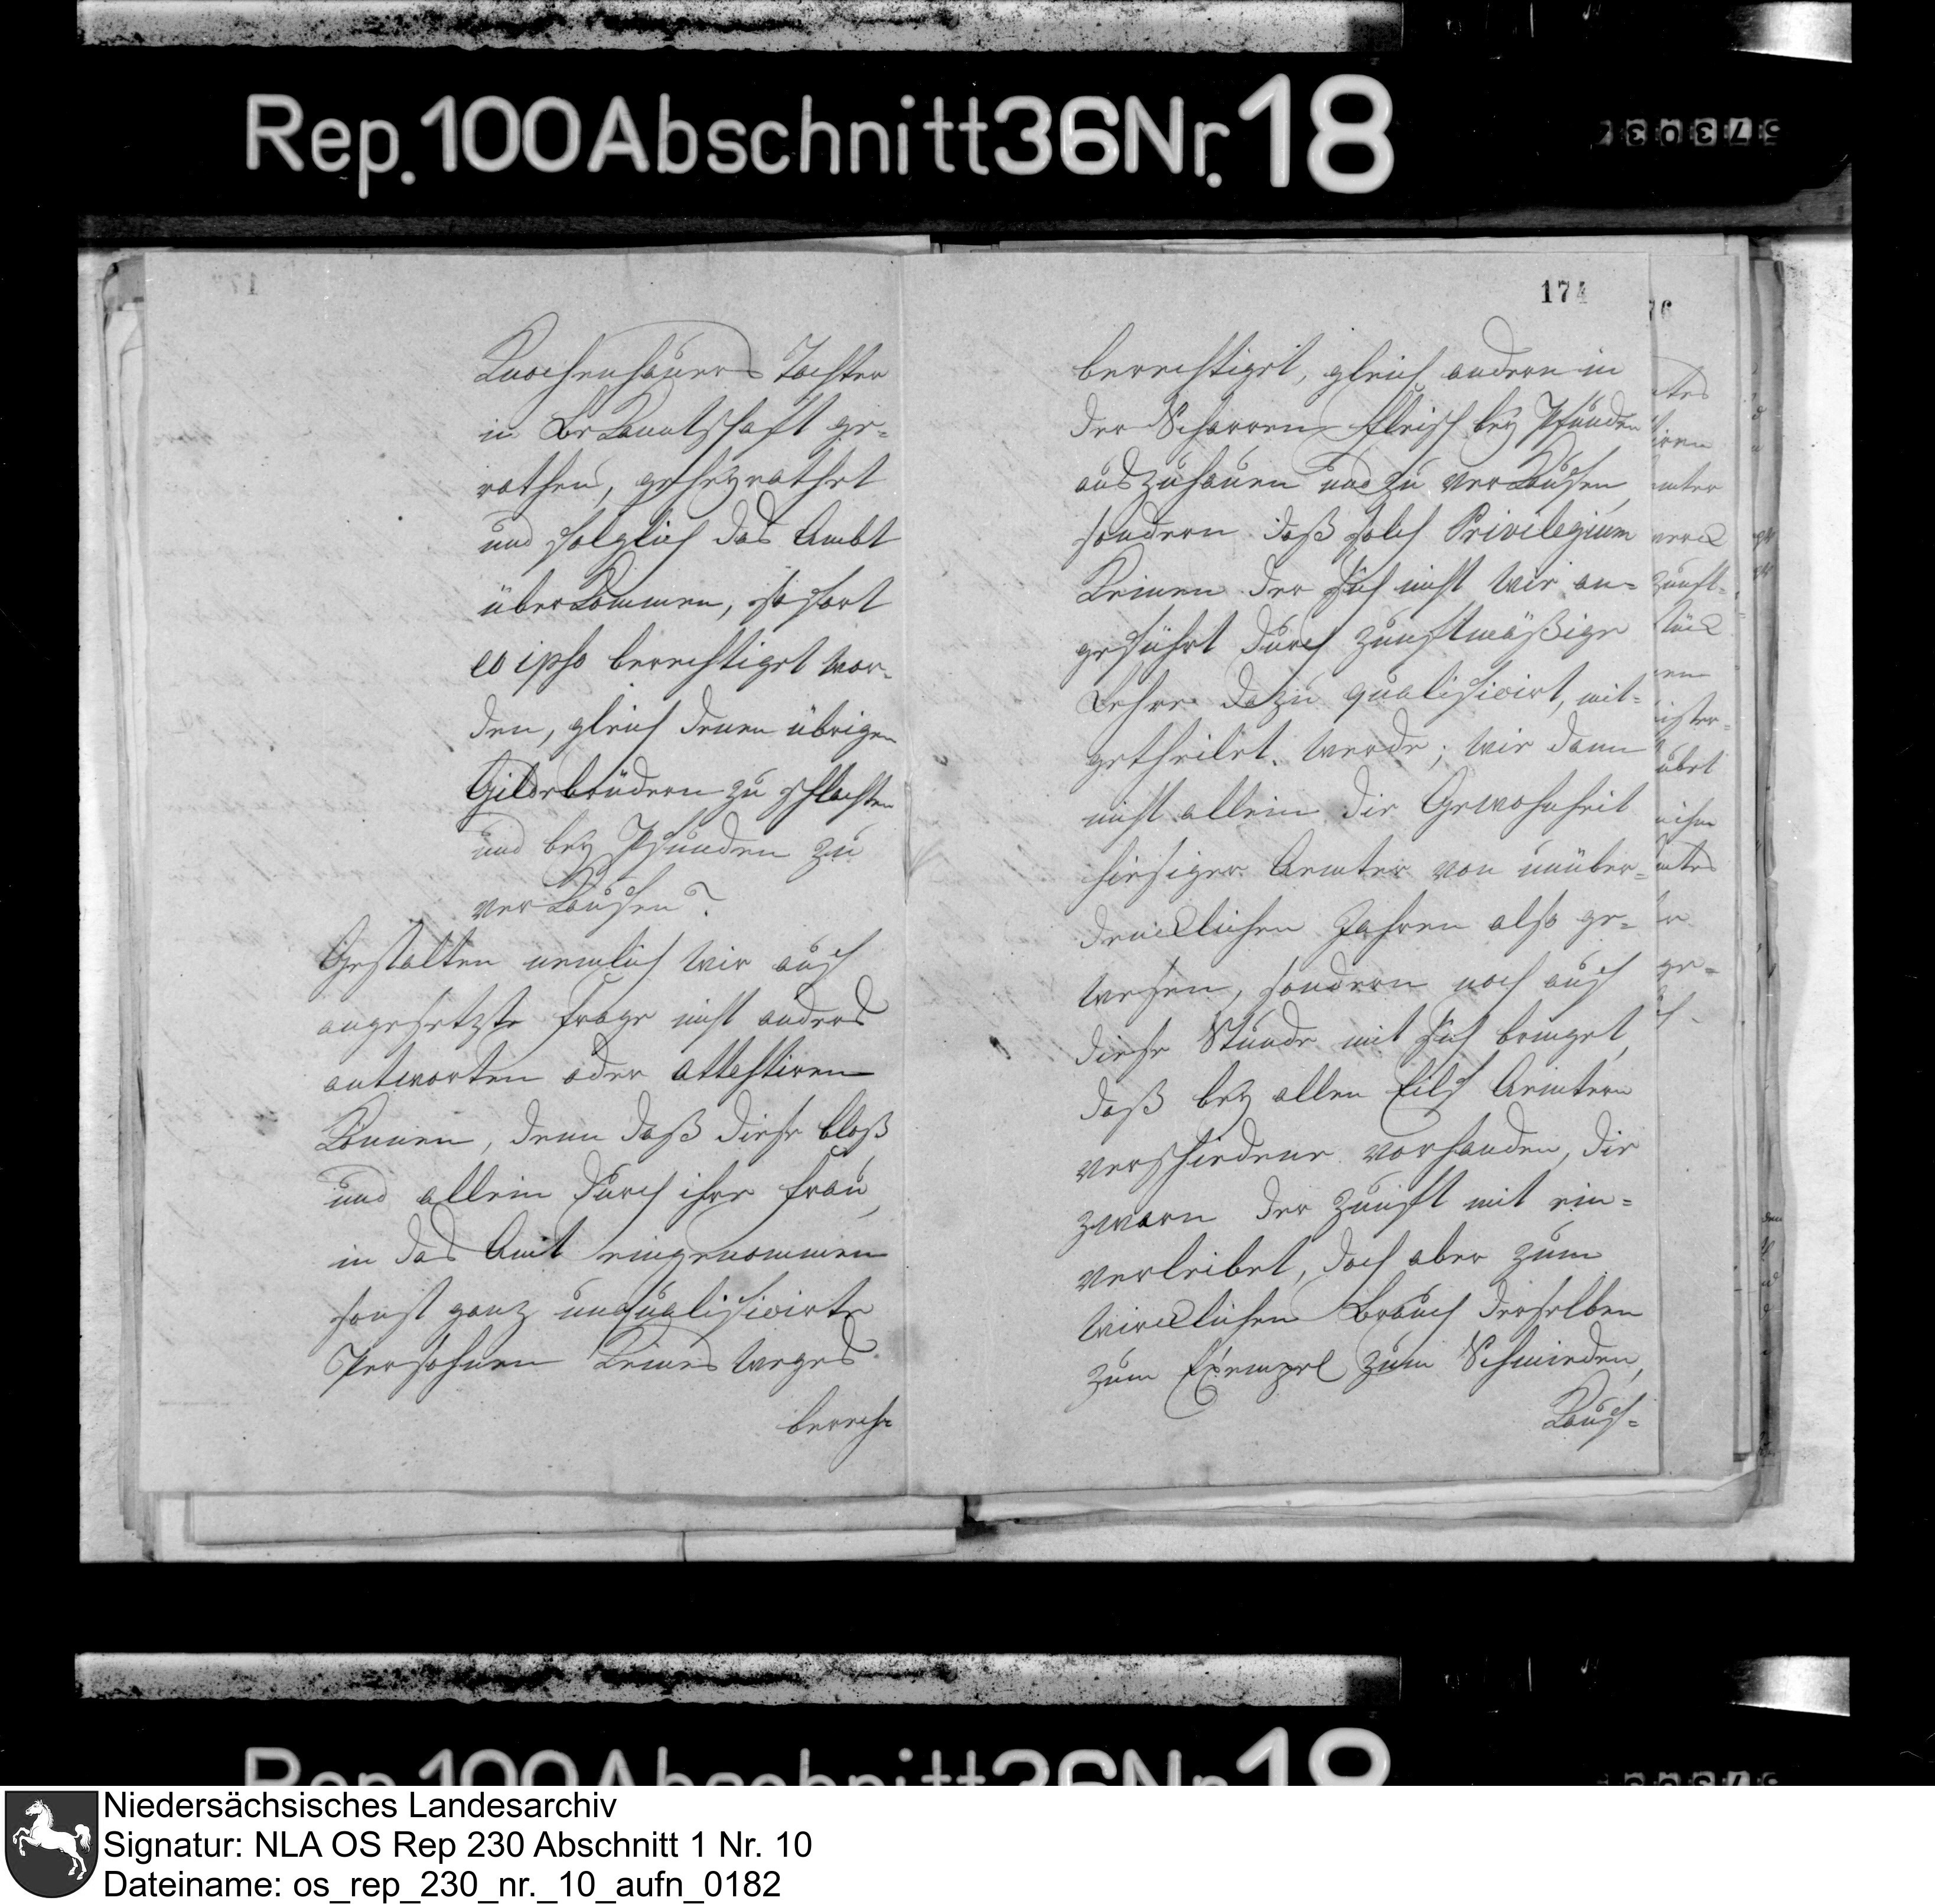 Rep. 100 Abschnitt 36 Nr. 18
Knochenhauers Tochter
in Bekanntschaft ge-
rathen, geheyrathet
und folglich das Ambt
überkommen, sofort
eo ipso berechtiget wor-
den, gleich denen übrigen
Gildebrüdern zu schlachten
und bey Pfunden zu
verkaufen?
Gestalten nemlich wir auf
angesetzte Frage nicht anders
antworten oder attestiren
können, denn daß diese bloß
und allein durch ihre Frau,
in das Amt eingenommen
sonst ganz unqualificirte
Persohnen keines weges
berech-
174
berechtiget, gleich andern in
der Scharren Fleisch bey Pfunden
auszuhauen und zu verkaufen,
sondern daß solch Privilegium
keinen der sich nicht wie an-
geführt durch zunftmäßige
Lehre dazu qualificirt, mit-
getheilet werde; wie dann
nicht allein die Gewohnheit
hiesiger Aemter von unüber-
dencklichen Jahren also ge-
wesen, sondern noch auf
diese Stunde mit sich bringet,
daß bey allen Eilf Aemtern
verschiedene vorhanden, die
zwarn der Zunft mit ein-
verleibet, doch aber zum
wircklichen Brauch derselben
zum Exempel zum Schmieden,
Kauf-
76
Niedersächsisches Landesarchiv
Signatur: NLA OS Rep 230 Abschnitt 1 Nr. 10
Dateiname: os_rep_230_nr._10_aufn_0182